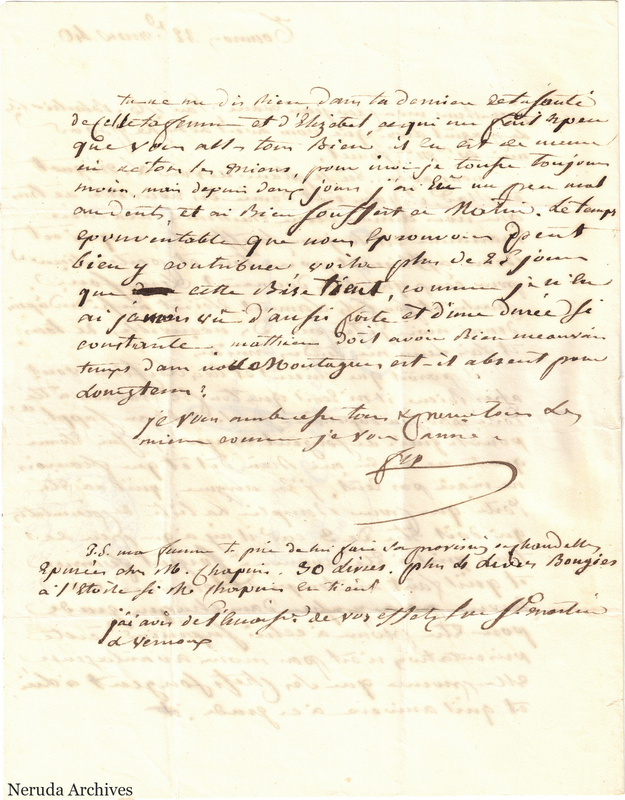 tu ne me dis Rien, dans ta derniere de ta santé
de celle ta femme et d'Elizabet, ce qui me fait
que vous alles tous Bien, il en est de meme
de tous les miens, pour moi je tousse toujours
moins, mais depuis deux jours j'ai eü un peu mal
au dents, et ai Bien souffert ce Matin. Le temps
epouventable que nous Eprouvons peut
bien y contribuer voila plus de 25 jours
que cette Bise tient, comme je n'en
ai jamais vü d'aussi forte et d'une durée si
constante. mathieu doit avoir Bien meauvais
temps dans Montagnes est-il absent pour
Longtems?
je vous embrasse tous & pour tous les
miens comme je vous aime.
P.S. ma femme te prie de lui faire sa provision en chandelles
Epurées ches M. Chapuis. 30 livres. plus 4 livres Bougies
à l'Etoile si Mr Chapuis En tient
j'ai avis de l'Envoi de vos effets sur St martin
& Vernoux
Neruda Archives